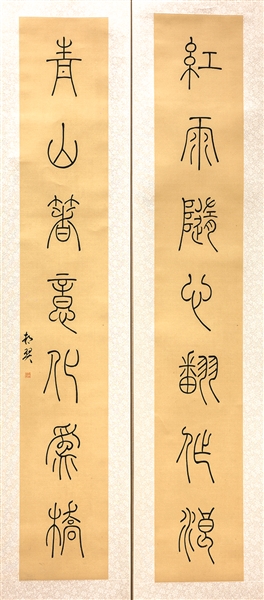 紅雨隨心翻作浪
青山著意化為橋